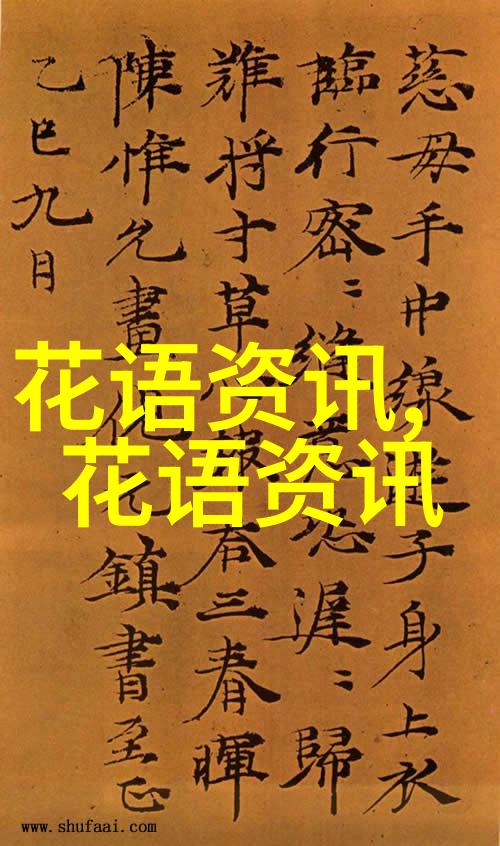 慈母手中線遊子身上衣
臨行密〻縫意恐遲〻歸
難將寸草心報答三春暉
陳惟允畫倪元鎮書至正
乙巳九月
花语资讯,
花语资讯
www.shufaai.com